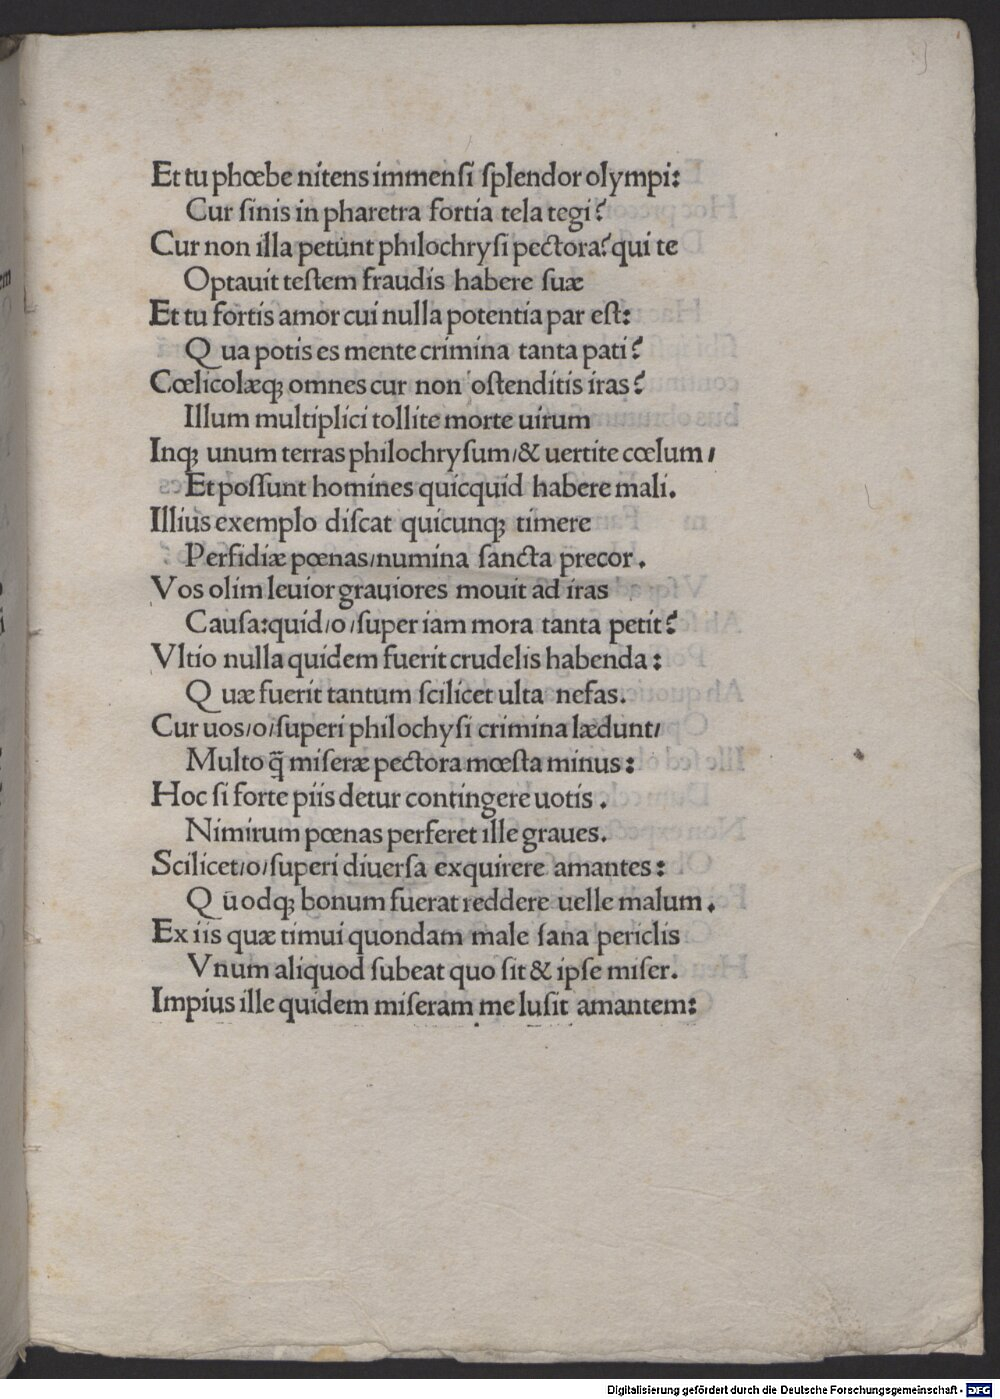 Et tu phœbe nitens immensi splendor olympi:
Cur sinis in pharetra fortia tela tegi?
Cur non illa petunt philochrysi pectora? qui te
Optauit testem fraudis habere suæ
Et tu fortis amor cui nulla potentia par est:
Qua potis es mente crimina tanta pati?
Cœlicolæq; omnes cur non ostenditis iras?
Illum multiplici tollite morte uirum
Inq; unum terras philochrysum/& uertite cœlum/
Et possunt homines quicquid habere mali.
Illius exemplo discat quicunq; timere
Perfidiæ pœnas/numina sancta precor.
Vos olim leuior grauiores mouit ad iras
Causa:quid/o/super iam mora tanta petit?
Vltio nulla quidem fuerit crudelis habenda:
Quæ fuerit tantum scilicet ulta nefas.
Cur uos/o/superi philochysi crimina lædunt/
Multo q̃ miseræ pectora mœsta minus:
Hoc si forte piis detur contingere uotis.
Nimirum pœnas perferet ille graues.
Scilicet/o/superi diuersa exquirere amantes:
Quodq; bonum fuerat reddere uelle malum.
Ex iis quæ timui quondam male sana periclis
Vnum aliquod subeat quo sit & ipse miser.
Impius ille quidem miseram me lusit amantem:
Digitalisierung gefördert durch die Deutsche Forschungsgemeinschaft - DFG